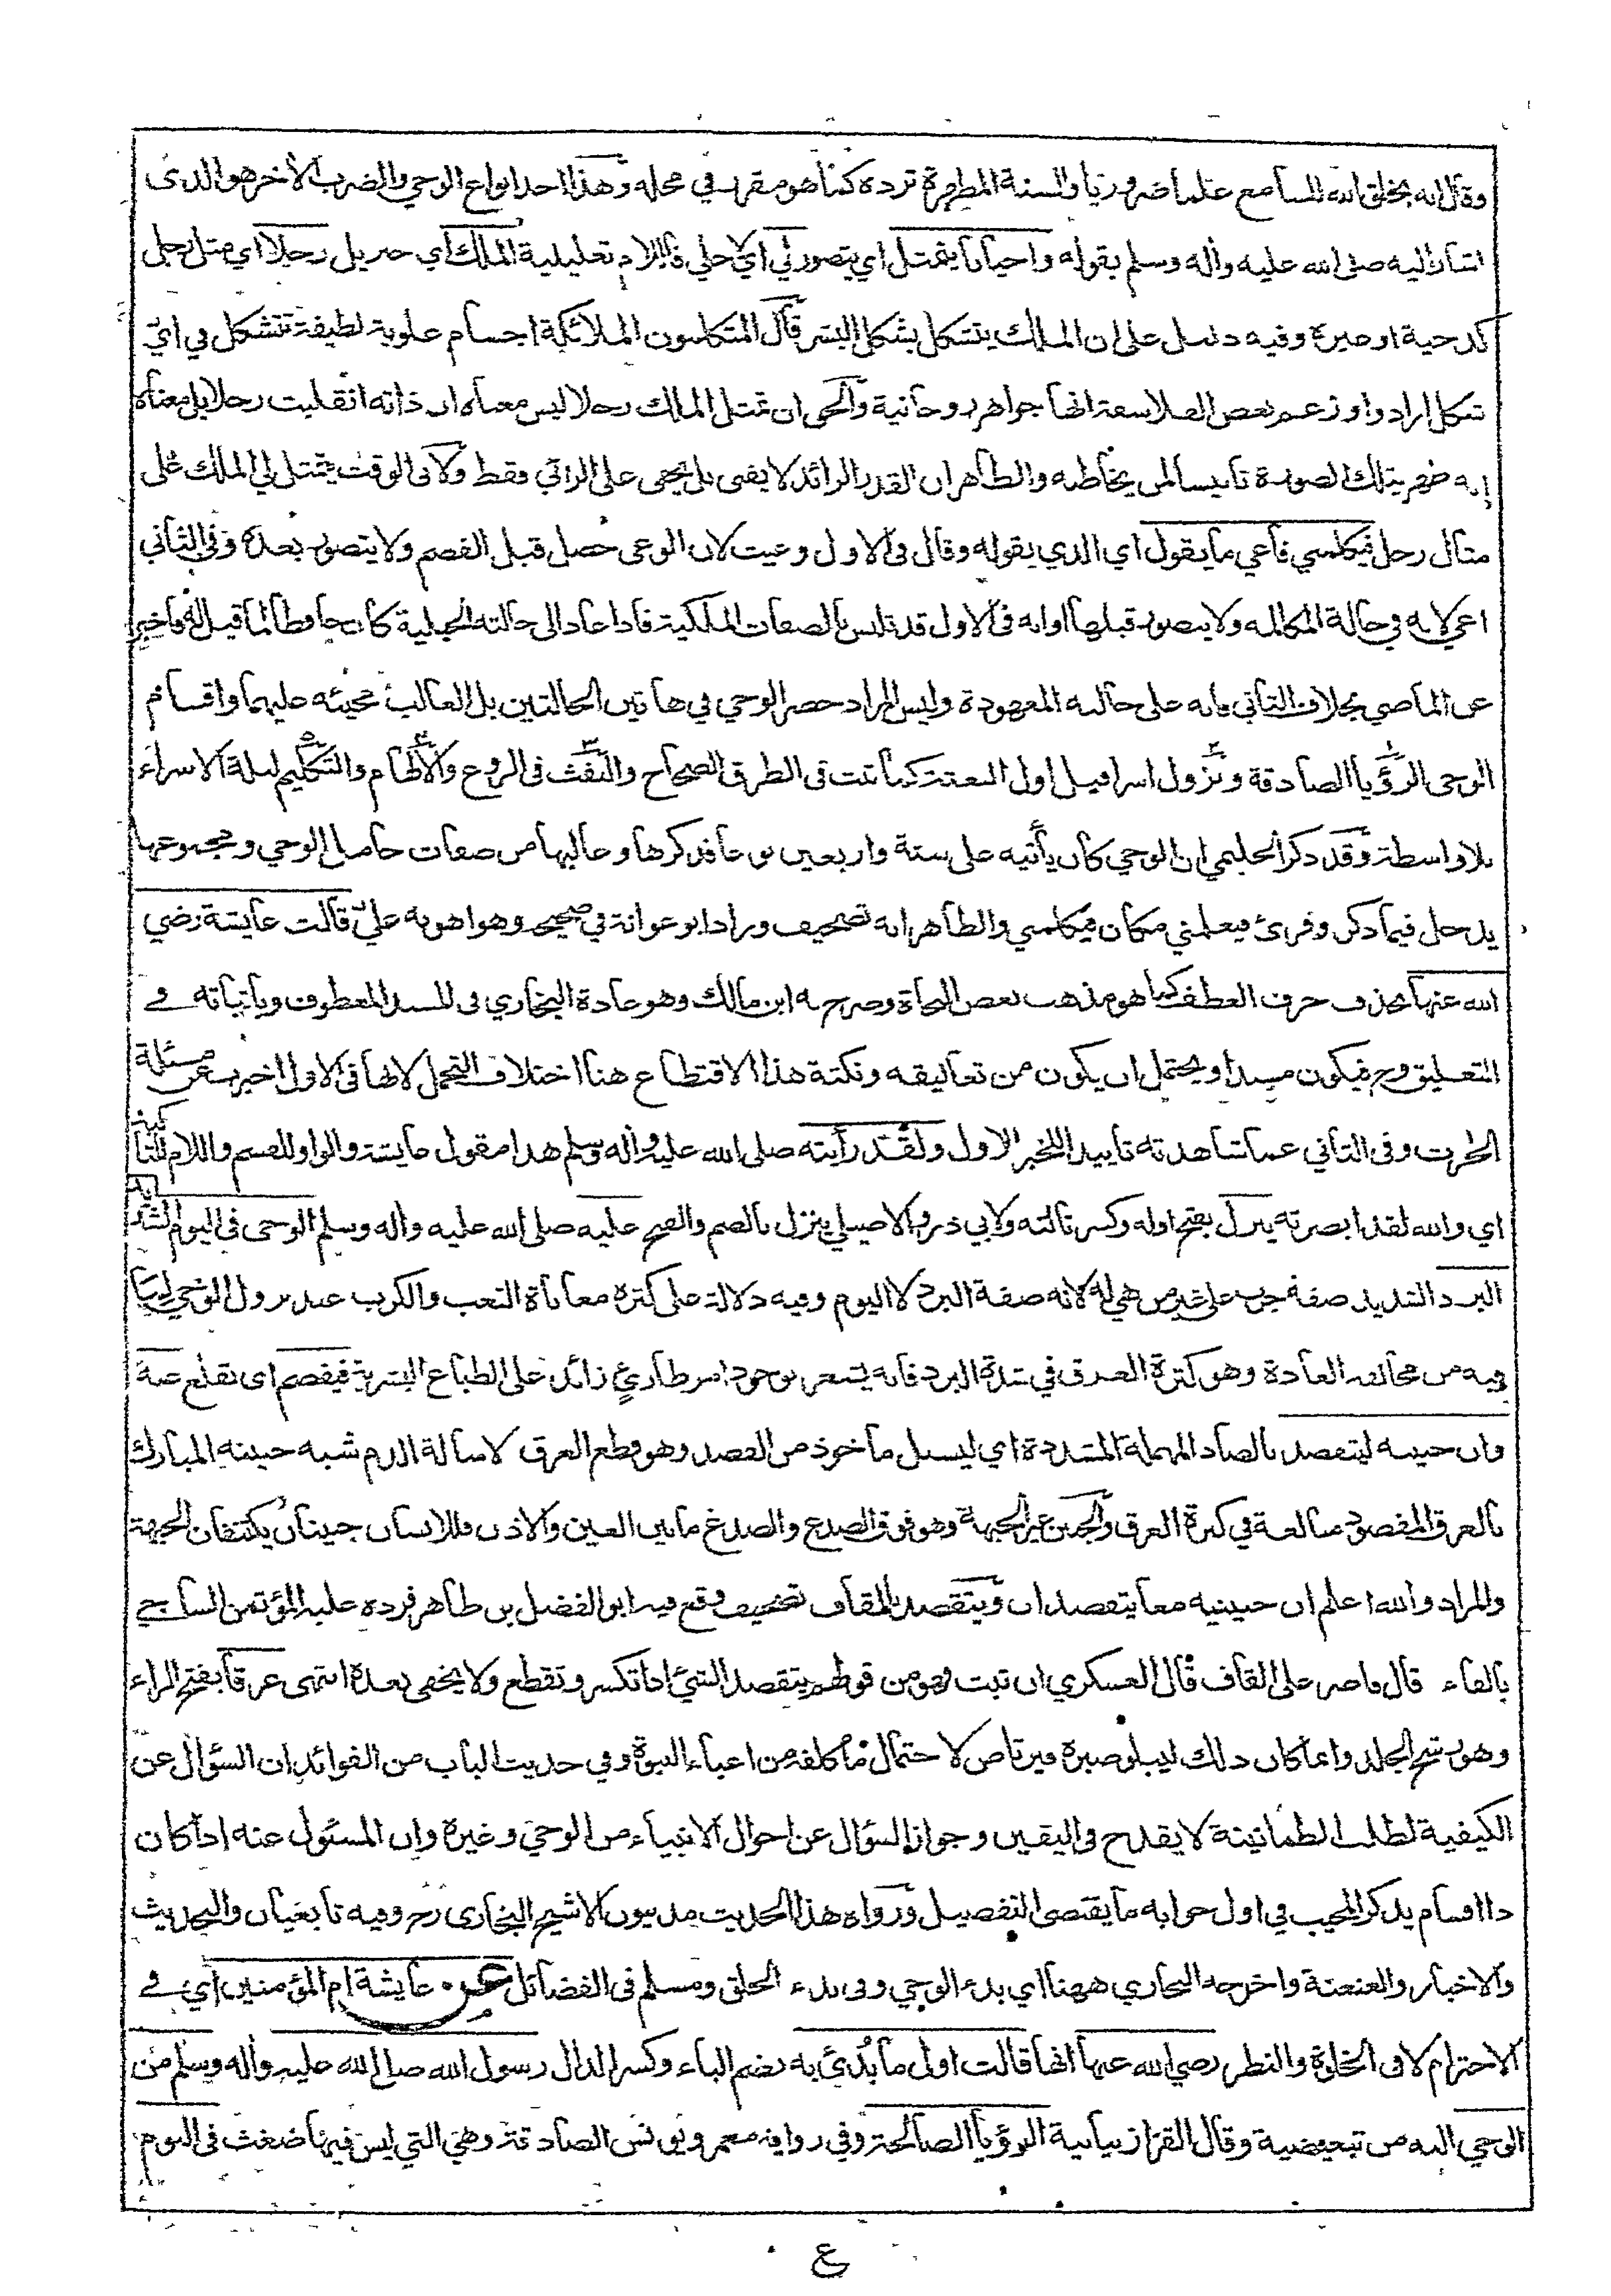 وقال انه يخلق الله للسامع علما ضروريا والسنة المطهرة ترده كما هو مقرر في محله وهذا احد انواع الوحي والضرب الأخر هو الذى
اشار اليه صلى الله عليه واله وسلم بقوله واحيانا يتمثل اي يتصور لي اي لاجلي فاللام تعليلية الملك اي جبريل رجلا اي مثل رجل
كدحية او غيره وفيه دليل على ان الملك يتشكل بشكل البشر قال المتكلمون الملائكة اجسام علوية لطيفة تتشكل في اي
شكل ارادوا وزعم بعض الفلاسفة انها جواهر روحانية والحق ان تمثل الملك رجلا ليس معناه ان ذاته انقلبت رجلا بل معناه
انه ظهر بتلك الصورة تانيسا لمن يخاطبه والظاهر ان القدر الزائد لا يفنى بل يخفى على الرائي فقط ولابى الوقت يتمثل لي الملك على
مثال رجل فيكلمني فاعي ما يقول اي الذي يقوله وقال فى الاول وعيت لان الوعى حصل قبل الفصم ولا يتصور بعده وفى الثانى
اعي لانه في حالة المكالمه ولا يتصور قبلها او انه فى الاول قد تلبس بالصفات الملكية فاذا عاد الى حالته الجبلية كان حافظا لما قيل له فاخبر
عن الماضي بخلاف الثانى فانه على حالته المعهودة وليس المراد حصر الوحي في هاتين الحالتين بل الغالب مجيئه عليهما واقسام
الوحى الرؤيا الصادقة ونزول اسرافيل اول البعثة كما ثبت فى الطرق الصحاح والنفث فى الروع والالهام والتكليم ليلة الاسراء
بلا واسطة وقد ذكر الحليمي ان الوحي كان يأتيه على ستة واربعين نوعا فذكرها وغالبها من صفات حامل الوحي ومجموعها
يدخل فيما ذكر وقرئ فيعلمني مكان فيكلمني والظاهر انه تصحيف وزاد ابو عوانة في صحيحه وهو اهونه علىّ قالت عايشة رضي
الله عنها بحذف حرف العطف كما هو مذهب بعض النحاة وصرح به ابن مالك وهو عادة البخاري فى المسند المعطوف وباثباته في
التعليق وح فيكون مسندا ويحتمل ان يكون من تعاليقه ونكتة هذا الاقتطاع هنا اختلاف التحمل لانها فى الاول اخبرت عن مسئلة
الحارث وفى الثاني عما شاهدته تاييدا للخبر الاول ولقد رأيته صلى الله عليه واله وسلم هذا مقول عايشة والواو للقسم واللام للتاكيد
اي والله لقد ابصرته ينزل بفتح اوله وكسر ثالثه ولابي ذر والاصيلي ينزل بالضم والفتح عليه صلى الله عليه واله وسلم الوحى فى اليوم الشديد
البرد الشديد صفة جرت على غير من هي له لانه صفة البرد لا اليوم وفيه دلالة على كثرة معاناة التعب والكرب عند نزول الوحي لما
فيه من مخالفه العادة وهو كثرة العرق في شدة البرد فانه يشعر بوجود امر طارئ زائد على الطباع البشرية فيفصم اى تقلع عنه
وان جبينه ليتفصد بالصاد المهملة المشددة اي ليسيل ماخوذ من الفصد وهو قطع العرق لاسالة الدم شبه جبينه المبارك
بالعرق المفصود مبالغة في كثرة العرق والجبين غير الجبهة وهو فوق الصدغ والصدغ ما بين العين والاذن فللانسان جبينان يكتنفان الجبهة
والمراد والله اعلم ان جبينيه معا يتفصدان ويتقصد بالقاف تصحيف وقع فيه ابو الفضل بن طاهر فرده عليه المؤتمن الساجي
بالفاء قال فاصر على القاف قال العسكري ان ثبت فهو من قولهم يتقصد الشئ اذا تكسر وتقطع ولا يخفى بعده انتهى عرقا بفتح الراء
وهو رشح الجلد وانما كان ذلك ليبلو صبره فيرتاض لاحتمال ما كلفه من اعباء النبوة وفي حديث الباب من الفوائد ان السؤال عن
الكيفية لطلب الطمانينة لا يقدح فى اليقين وجواز السؤال عن احوال الانبياء من الوحي وغيره وان المسئول عنه اذا كان
ذا اقسام يذكر المجيب في اول جوابه ما يقتضى التفصيل ورواه هذا الحديث مدنيون الا شيخ البخارى رح وفيه تابعيان والتحديث
والاخبار والعنعنة واخرجه البخاري ههنا اي بدء الوحي وفى بدء الخلق ومسلم فى الفضائل عن عايشة ام المؤمنين اي في
الاحترام لا فى الخلوة والنظر رضي الله عنها انها قالت اول ما بُدئ به بضم الباء وكسر الدال رسول الله صلى الله عليه واله وسلم من
الوحي اليه من تبعيضية وقال القزاز بيانية الرؤيا الصالحة وفي رواية معمر ويونس الصادقة وهي التي ليس فيها ضغث فى النوم
ع